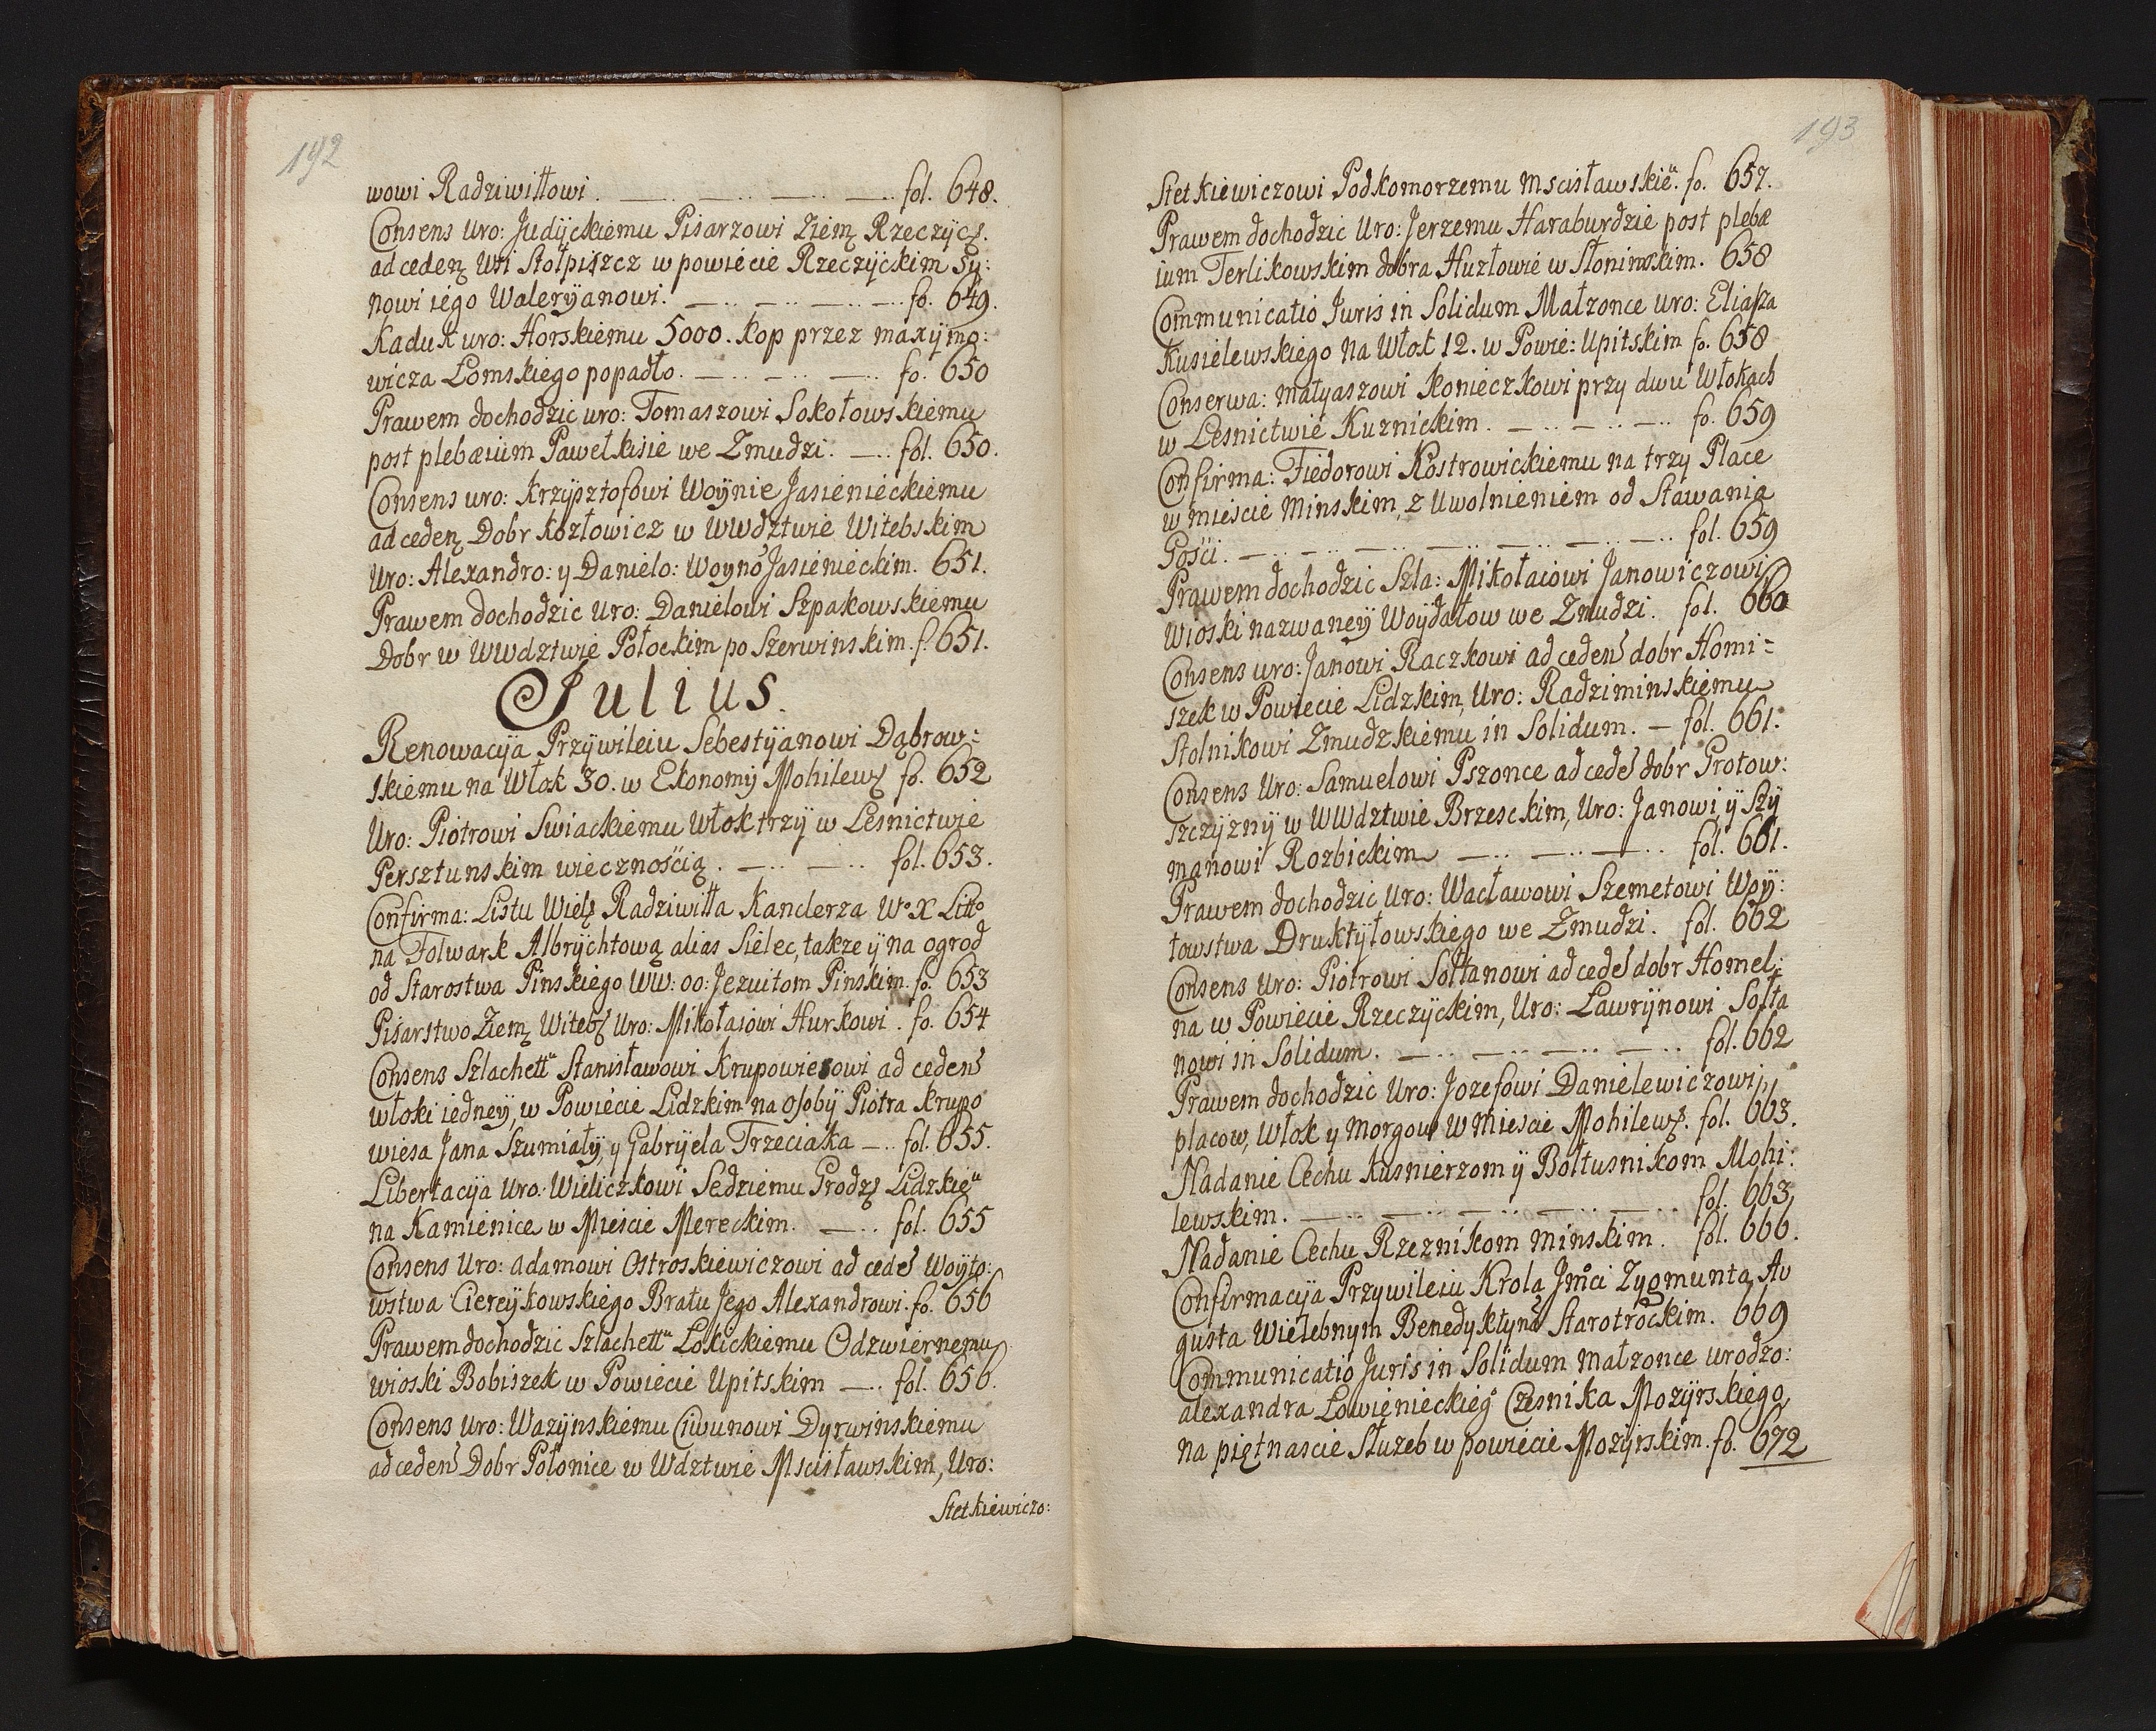 192
wowi Radziwiłłowi. fol. 648.
Consens Uro: Judÿckiemu Pisarzowi Ziem Rzeczÿc.
ad ceden Wsi Stołpiszcz w powiecie Rzeczÿckim Sÿ:
nowi iego Walerÿanowi. fo. 649.
Kaduk uro: Horskiemu 5000. kop przez maxÿmo:
wicza Łomskiego popadło. fo. 650
Prawem dochodzic uro: Tomaszowi Sokołowskiemu
post plebæium Pawełkisie we Zmudzi. fol. 650.
Consens uro: Krzÿsztofowi Woÿnie Jasienieckiemu
ad ceden Dobr Kozłowicz w WWdztwie Witebskim
Uro: Alexandro: y Danielo: Woyno Jasienieckim. 651.
Prawem dochodzic Uro: Danielowi Szpakowskiemu
Dobr w WWdztwie Połockim po Szerwinskim. f. 651.
Julius.
Renowacÿa Przÿwileiu Sebestÿanowi Dąbrow:
skiemu na Włok 30. w Ekonomÿ Mohilew fo. 652
Uro: Piotrowi Swiackiemu Włok trzÿ w Lesnictwie
Persztunskim wiecznością. fol. 653.
Confirma: Listu Wiel Radziwiłła Kanclerza Wo X Litto
na Folwark Albrÿchtową alias Sielec, takze ÿ na ogrod
od Starostwa Pinskiego WW: oo: Jezuitom Pinskim. fo. 653
Pisarstwo Ziem Witeb Uro: Mikołaiowi Hurkowi. fo. 654
Consens Szlachett Stanisławowi Krupowiesowi ad ceden
włoki iedneÿ, w Powiecie Lidzkim na osobÿ Piotra Krupo
wiesa Jana Szumiałÿ, y Gabrÿela Trzeciaka fol. 655.
Libertacÿa Uro: Wieliczkowi Sedziemu Grodz Lidzkie
na Kamienice w Miescie Mereckim. fol. 655
Consens Uro: adamowi Ostroskiewiczowi ad cede Woyto:
wstwa Ciereÿkowskiego Bratu Jego Alexandrowi. fo. 656
Prawem dochodzic Szlachett Lokickiemu Odzwiernemu
wioski Bobiszek w Powiecie Upitskim fol. 656.
Consens Uro: Wazÿnskiemu Ciwunowi Dyrwinskiemu
ad ceden Dobr Połonice w Wdztwie Mscisławskim, Uro:
Stetkiewiczo:
193
Stetkiewiczowi Podkomorzemu Mscisławskie. fo. 657.
Prawem dochodzic Uro: Jerzemu Haraburdzie post plebæ
ium Terlikowskim dobra Huzłowie w Słonimskim. 658
Communicatio Juris in Solidum Małzonce uro: Eliasza
Kusielewskiego na Włok 12. w Powie: Upitskim fo. 658
Conserwa: Matyaszowi Konieczkowi przy dwu Włokach
w Lesnictwie Kuznickim. fo. 659
Confirma: Fiedorowi Kostrowickiemu na trzy Place
w miescie Minskim, z Uwolnieniem od Stawania
Gości. fol. 659
Prawem dochodzic Szla: Mikołaiowi Janowiczowi
wioski nazwaneÿ Woydatow we Zmudzi. fol. 660
Consens uro: Janowi Raczkowi ad ceden dobr Homi=
szek w Powiecie Lidzkim, Uro: Radziminskiemu
Stolnikowi Zmudzkiemu in Solidum. fol. 661.
Consens Uro: Samuelowi Pszonce ad cede dobr Grotow:
szczÿznÿ w WWdztwie Brzesckim, Uro: Janowi, ÿ Szÿ
manowi Rozbickim fol. 661.
Prawem dochodzic Uro: Wacławowi Szemetowi Woÿ:
towstwa Druktÿtowskiego we Zmudzi. fol. 662
Consens Uro: Piotrowi Sołtanowi ad cede dobr Homel:
na w Powiecie Rzeczÿckim, Uro: Ławrÿnowi Sołta
nowi in Solidum. fol. 662
Prawem dochodzic Uro: Jozefowi Danielewiczowi
placow, Włok y Morgow w Miescie Mohilew. fol. 663.
Nadanie Cechu Kusnierzom ÿ Bołtusnikom Mohi:
lewskim. fol. 663
Nadanie Cechu Rzeznikom Minskim. fol. 666.
Confirmacÿa Przywileiu Krola Jmci Zygmunta Au
gusta Wielebnym Benedyktyno Starotrockim. 669
Communicatio Juris in Solidum małzonce urodzo:
alexandra Łowienieckieg Czesnika Mozÿrskiego
na piętnascie Słuzeb w powiecie Mozÿrskim. fo. 672